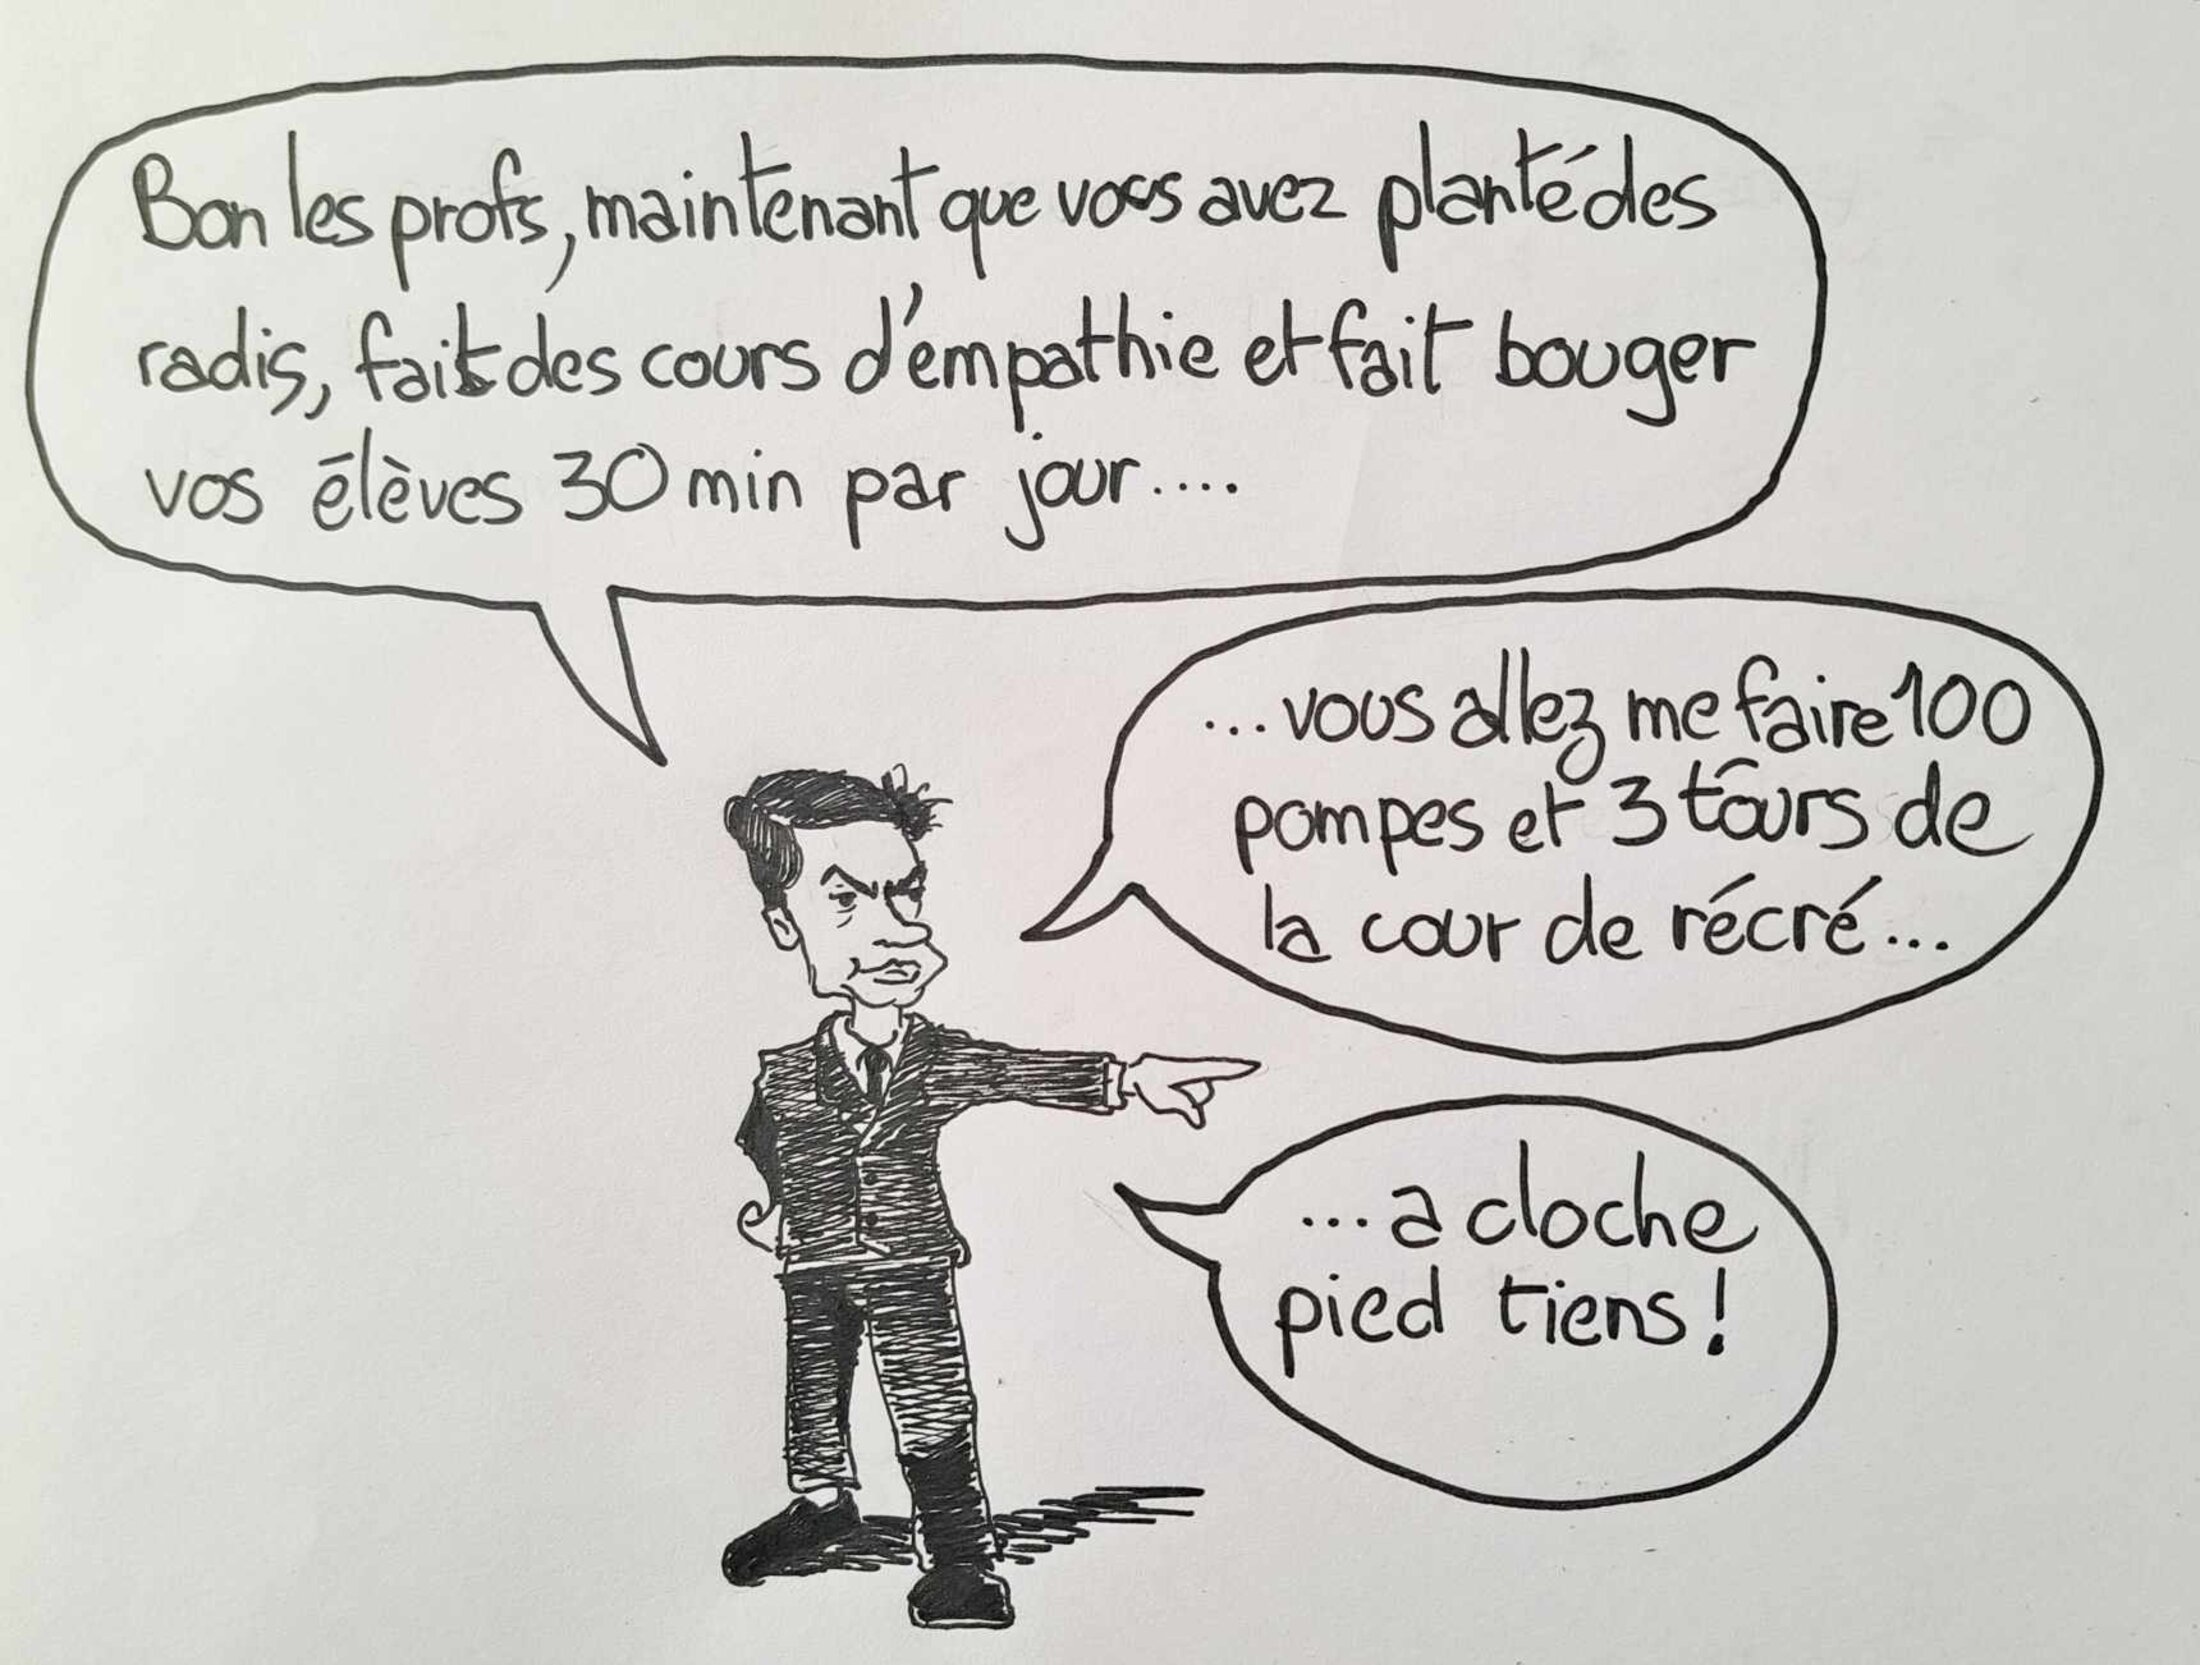 Bon les profs, maintenant que vous avez planté des
radis, fait des cours d'empathie et fait bouger
vos élèves 30 min par jour....
...vous allez me faire 100
pompes et 3 tours de
la cour de récré...
...a cloche
pied tiens!